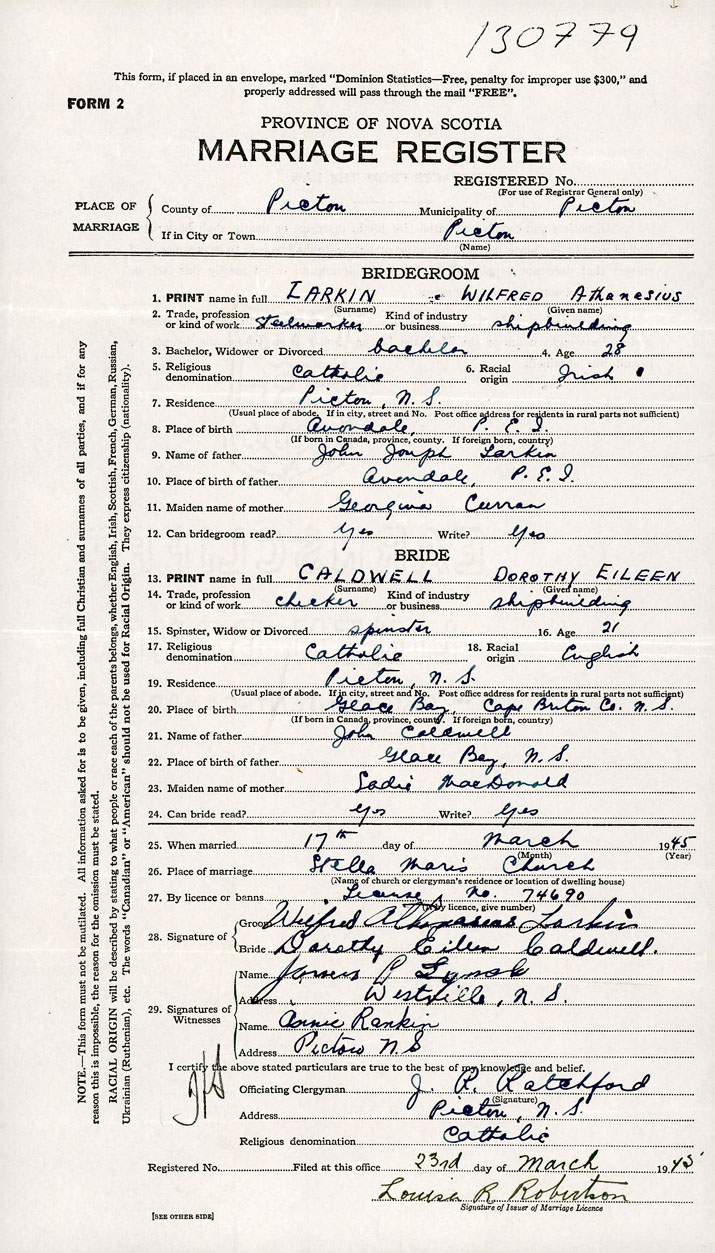 130779
This form, if placed in an envelope, marked "Dominion Statistics—Free, penalty for improper use $300," and
properly addressed will pass through the mail "FREE".
FORM 2
PROVINCE OF NOVA SCOTIA
MARRIAGE REGISTER
REGISTERED No.
(For use of Registrar General only)
PLACE OF MARRIAGE
County of Pictou Municipality of Pictou
If in City or Town Pictou
(Name)
BRIDEGROOM
1. PRINT name in full LARKIN WILFRED Athanasius
(Surname) (Given name)
2. Trade, profession or kind of work Steelworker Kind of industry or business shipbuilding
3. Bachelor, Widower or Divorced bachelor 4. Age 28
5. Religious denomination Catholic 6. Racial origin Irish
7. Residence Pictou, N.S.
(Usual place of abode. If in city, street and No. Post office address for residents in rural parts not sufficient)
8. Place of birth Avondale, P.E.I.
(If born in Canada, province, county. If foreign born, country)
9. Name of father John Joseph Larkin
10. Place of birth of father Avondale, P.E.I.
11. Maiden name of mother Georgina Curran
12. Can bridegroom read? Yes Write? Yes
BRIDE
13. PRINT name in full CALDWELL DOROTHY EILEEN
(Surname) (Given name)
14. Trade, profession or kind of work checker Kind of industry or business shipbuilding
15. Spinster, Widow or Divorced spinster 16. Age 21
17. Religious denomination Catholic 18. Racial origin English
19. Residence Pictou, N.S.
(Usual place of abode. If in city, street and No. Post office address for residents in rural parts not sufficient)
20. Place of birth Glace Bay, Cape Breton Co. N.S.
(If born in Canada, province, county. If foreign born, country)
21. Name of father John Caldwell
22. Place of birth of father Glace Bay, N.S.
23. Maiden name of mother Sadie MacDonald
24. Can bride read? Yes Write? Yes
25. When married 17th day of March 1945
(Month) (Year)
26. Place of marriage Stella Maris Church
(Name of church or clergyman's residence or location of dwelling house)
27. By licence or banns License No. 74690
(If by licence, give number)
28. Signature of
Groom Wilfred Athanasius Larkin
Bride Dorothy Eileen Caldwell.
29. Signatures of Witnesses
Name James P Lynch
Address Westville, N.S.
Name Annie Rankin
Address Pictou N S
I certify the above stated particulars are true to the best of my knowledge and belief.
Officiating Clergyman J. R. Ratchford
(Signature)
Address Pictou, N.S.
Religious denomination Catholic
Registered No. Filed at this office 23rd day of March 1945
Louisa R Robertson
Signature of Issuer of Marriage Licence
[SEE OTHER SIDE]
NOTE.—This form must not be mutilated. All information asked for is to be given, including full Christian and surnames of all parties, and if for any
reason this is impossible, the reason for the omission must be stated.
RACIAL ORIGIN will be described by stating to what people or race each of the parents belongs, whether English, Irish, Scottish, French, German, Russian,
Ukrainian (Ruthenian), etc. The words "Canadian" or "American" should not be used for Racial Origin. They express citizenship (nationality).